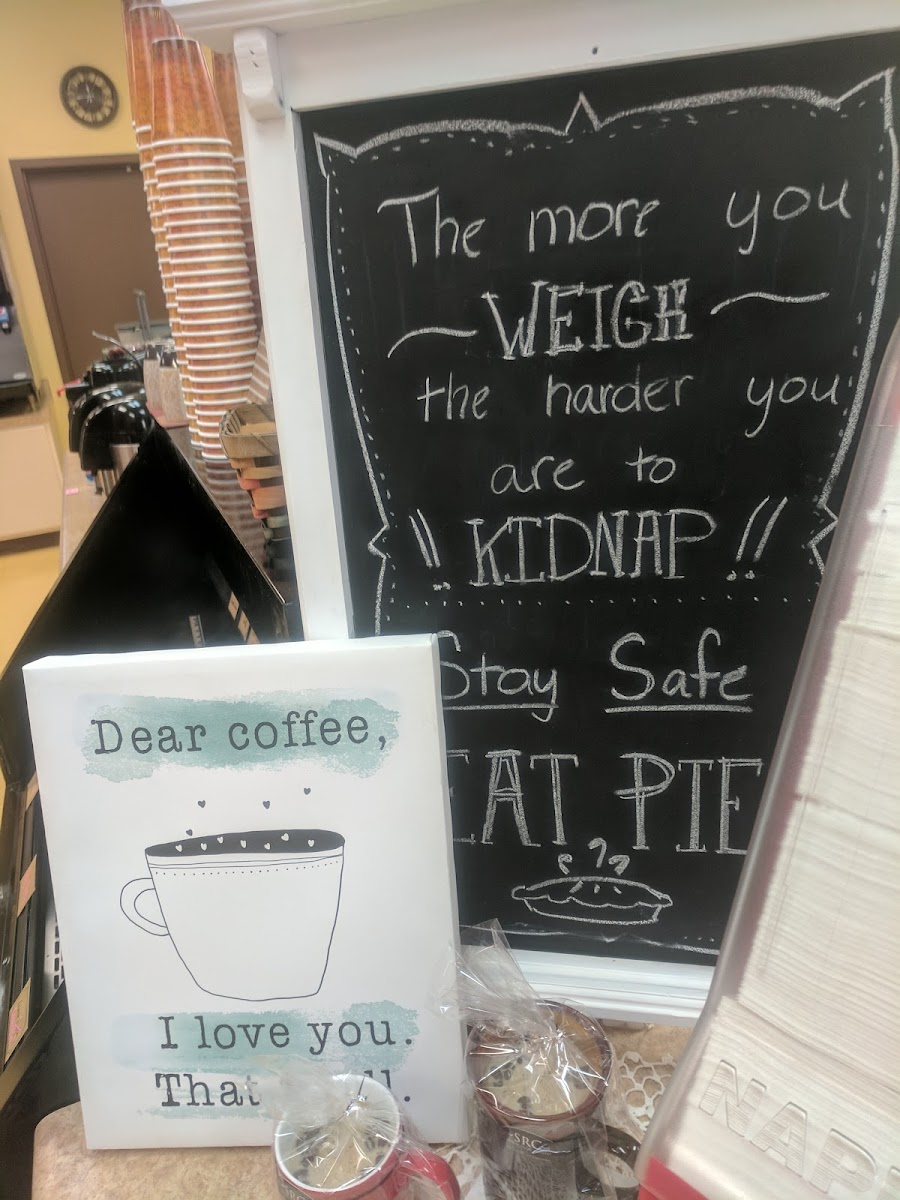 The more you
~ WEIGH ~
the harder you
are to
!! KIDNAP !!
Stay Safe
EAT PIE
Dear coffee,
I love you.
That
NAP